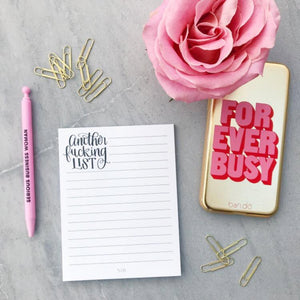 another
fucking
LIST
SERIOUS BUSINESS WOMAN
FOR
EVER
BUSY
ban.do